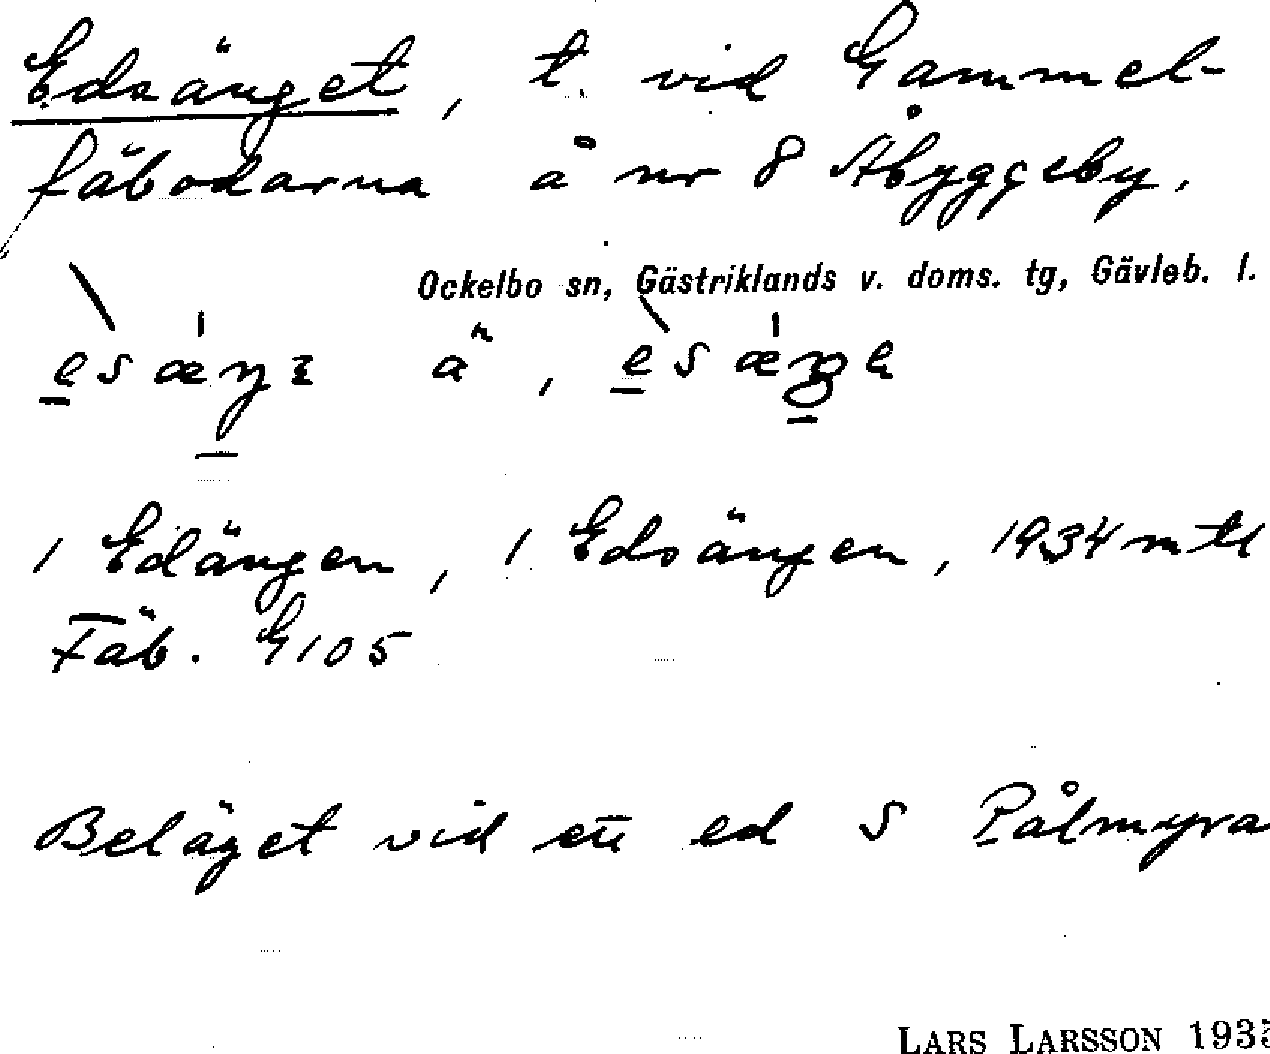 Edsänget, t. vid Gammel-
fäbodarna å nr 8 Åbyggeby.
Ockelbo sn, Gästriklands v. doms. tg, Gävleb. l.
/ Edängen, / Edsängen, 1934 mtl
Fäb. G 105
Beläget vid ett ed S Pålmyra
LARS LARSSON 193